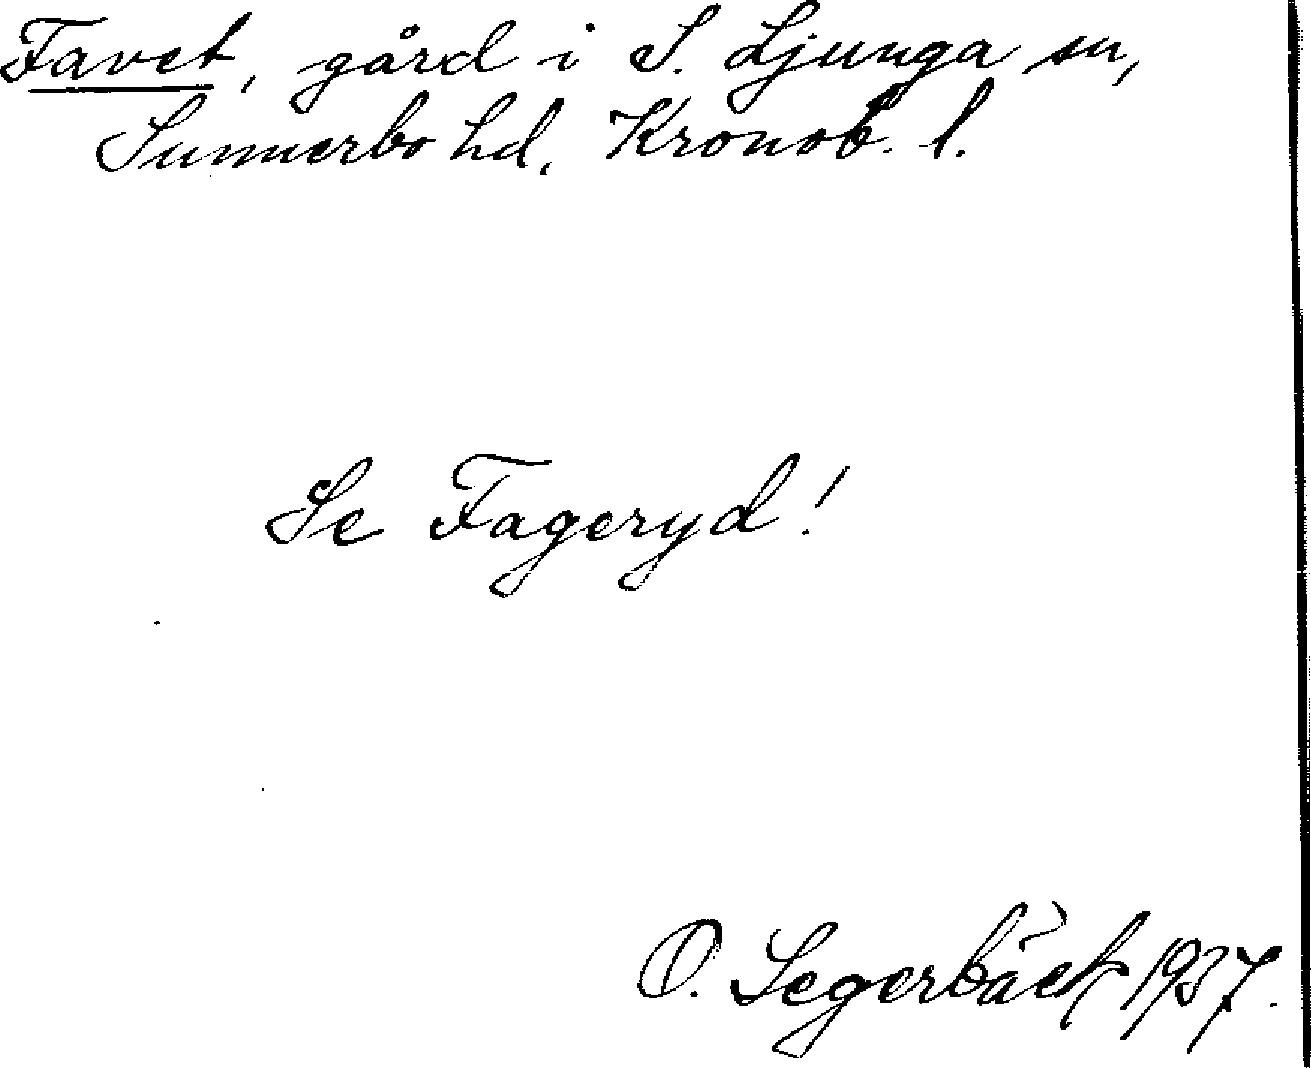 Favet, gård i S. Ljunga sn,
Sunnerbo hd, Kronob. l.
Se Fageryd!
O. Segerbäck 1937.